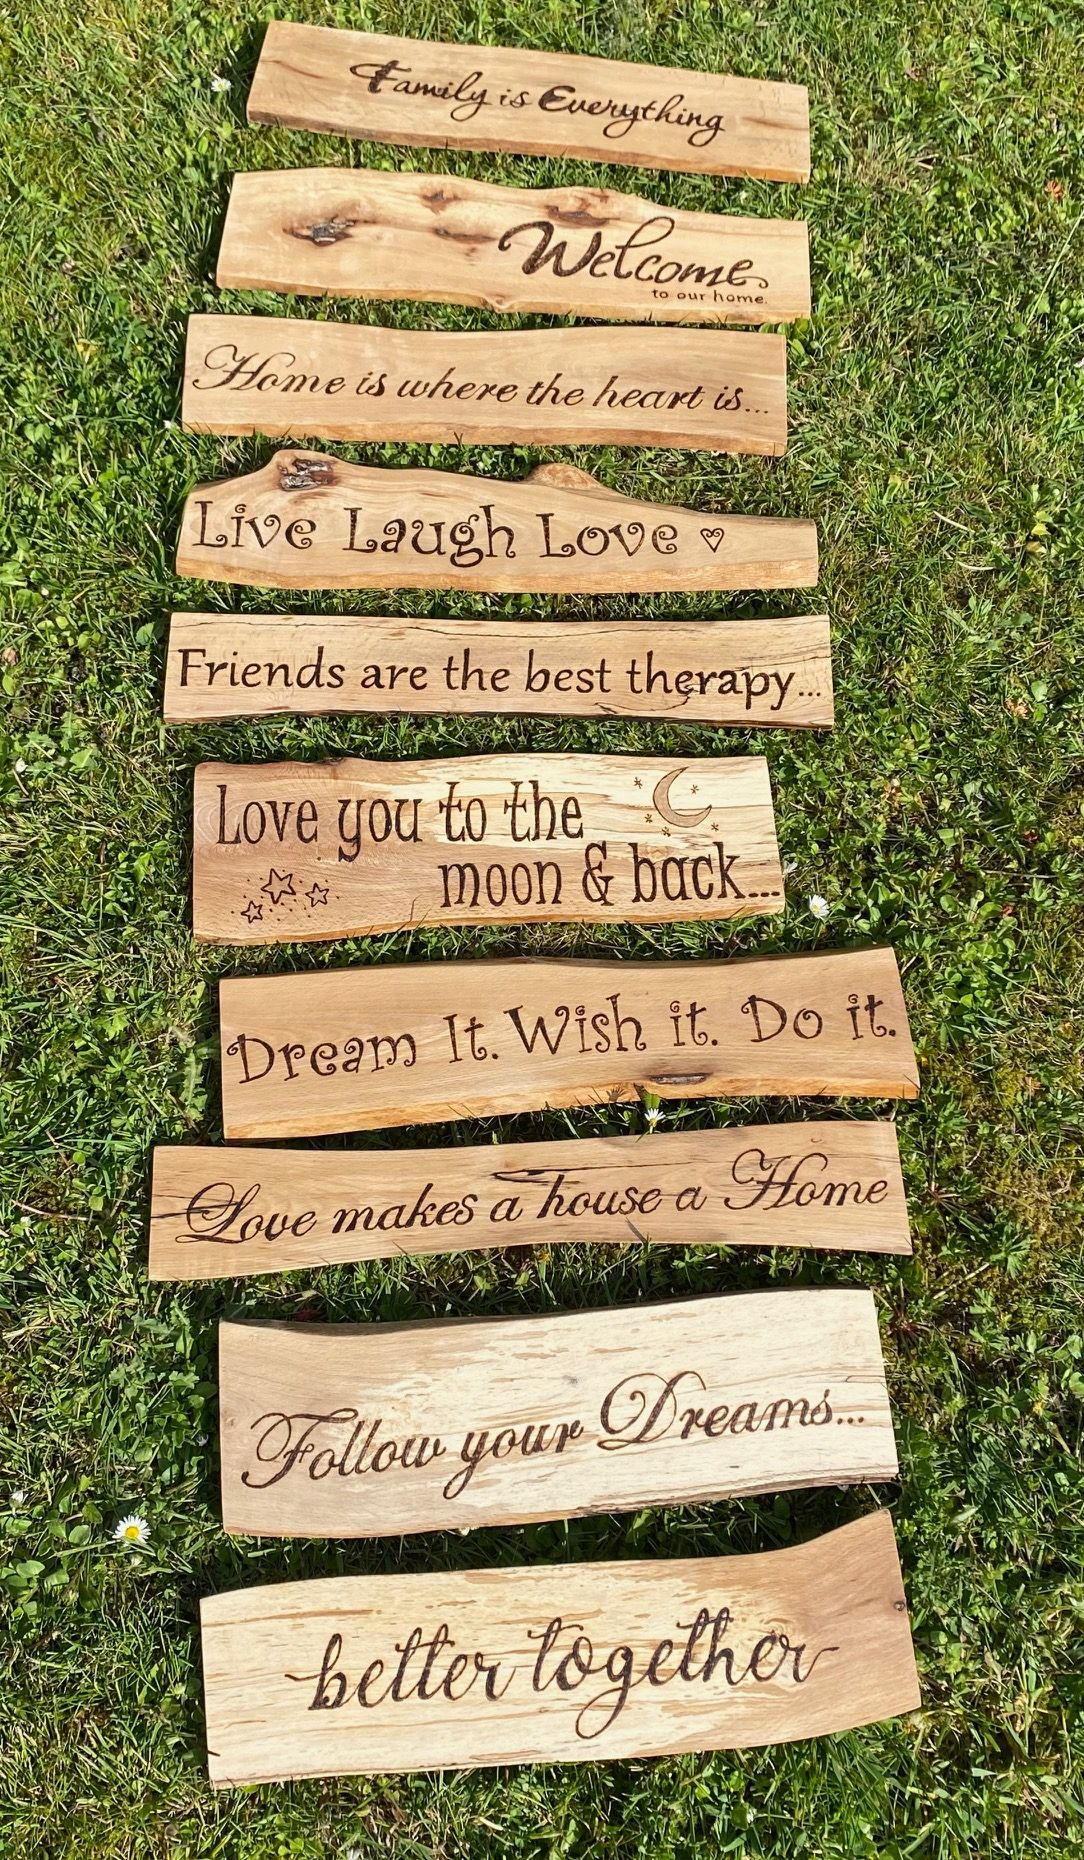 Family is Everything
Welcome
to our home.
Home is where the heart is...
Live Laugh Love ♡
Friends are the best therapy...
Love you to the
moon & back...
Dream It. Wish it. Do it.
Love makes a house a Home
Follow your Dreams...
better together